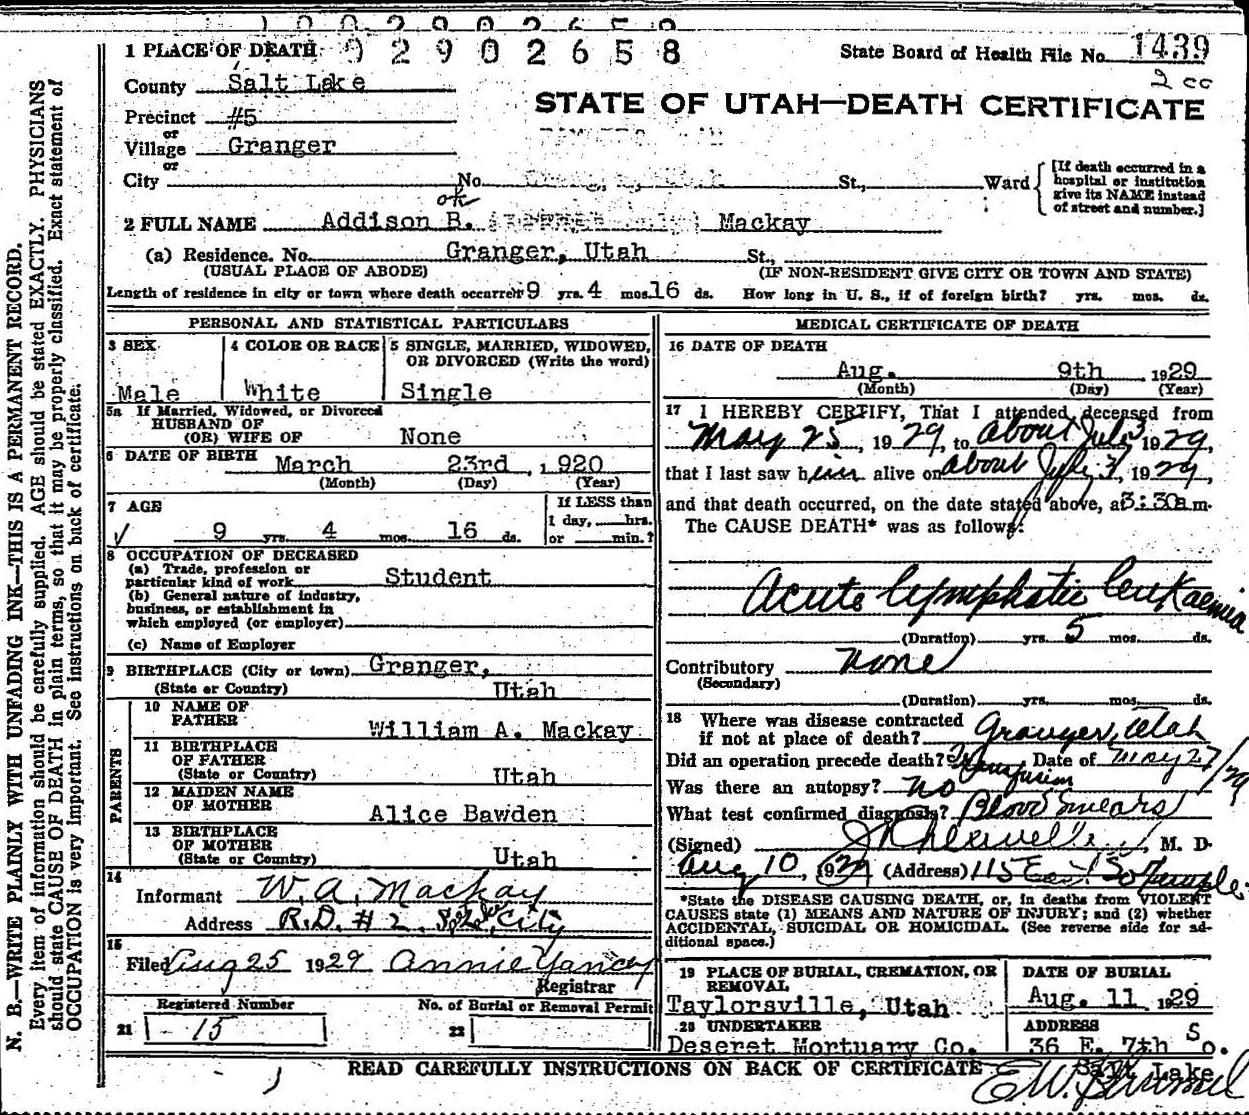 N. B.—WRITE PLAINLY WITH UNFADING INK—THIS IS A PERMANENT RECORD.
Every item of information should be carefully supplied. AGE should be stated EXACTLY. PHYSICIANS
should state CAUSE OF DEATH in plain terms, so that it may be properly classified. Exact statement of
OCCUPATION is very important. See instructions on back of certificate.
1 PLACE OF DEATH 02902658
State Board of Health File No. 1439
2 cc
County Salt Lake
STATE OF UTAH—DEATH CERTIFICATE
Precinct #5
or
Village Granger
or
City No. St., Ward
[If death occurred in a
hospital or institution
give its NAME instead
of street and number.]
ok
2 FULL NAME Addison B. Mackay
(a) Residence. No. Granger, Utah St.,
(USUAL PLACE OF ABODE) (IF NON-RESIDENT GIVE CITY OR TOWN AND STATE)
Length of residence in city or town where death occurred 9 yrs. 4 mos. 16 ds. How long in U. S., if of foreign birth? yrs. mos. ds.
PERSONAL AND STATISTICAL PARTICULARS
3 SEX
Male
4 COLOR OR RACE
White
5 SINGLE, MARRIED, WIDOWED,
OR DIVORCED (Write the word)
Single
5a If Married, Widowed, or Divorced
HUSBAND OF
(OR) WIFE OF None
6 DATE OF BIRTH March 23rd, 1920
(Month) (Day) (Year)
7 AGE
9 yrs. 4 mos. 16 ds.
If LESS than
1 day, hrs.
or min.?
8 OCCUPATION OF DECEASED
(a) Trade, profession or
particular kind of work Student
(b) General nature of industry,
business, or establishment in
which employed (or employer)
(c) Name of Employer
9 BIRTHPLACE (City or town) Granger,
(State or Country) Utah
PARENTS
10 NAME OF
FATHER William A. Mackay
11 BIRTHPLACE
OF FATHER
(State or Country) Utah
12 MAIDEN NAME
OF MOTHER Alice Bawden
13 BIRTHPLACE
OF MOTHER
(State or Country) Utah
14
Informant W. A. Mackay
Address R.D. #2 City
15
Filed Aug 25 1929 Annie Yancey
Registrar
Registered Number
21 15
No. of Burial or Removal Permit
22
MEDICAL CERTIFICATE OF DEATH
16 DATE OF DEATH
Aug. 9th 1929
(Month) (Day) (Year)
17 I HEREBY CERTIFY, That I attended deceased from
May 25, 1929, to about July 3 1929,
that I last saw him alive on about July 3, 1929,
and that death occurred, on the date stated above, at 3:30 a m.
The CAUSE DEATH* was as follows:
Acute lymphatic leukaemia
(Duration) yrs. 5 mos. ds.
Contributory None
(Secondary)
(Duration) yrs. mos. ds.
18 Where was disease contracted
if not at place of death? Granger, Utah
Did an operation precede death? Transfusion Date of May 27/29
Was there an autopsy? No
What test confirmed diagnosis? Blood Smears
(Signed) M. D.
Aug 10, 1929 (Address) 115 East So Temple.
*State the DISEASE CAUSING DEATH, or, in deaths from VIOLENT
CAUSES state (1) MEANS AND NATURE OF INJURY; and (2) whether
ACCIDENTAL, SUICIDAL OR HOMICIDAL. (See reverse side for ad-
ditional space.)
19 PLACE OF BURIAL, CREMATION, OR
REMOVAL
Taylorsville, Utah
DATE OF BURIAL
Aug. 11 1929
20 UNDERTAKER
Deseret Mortuary Co.
ADDRESS
36 E. 7th So.
Salt Lake
READ CAREFULLY INSTRUCTIONS ON BACK OF CERTIFICATE